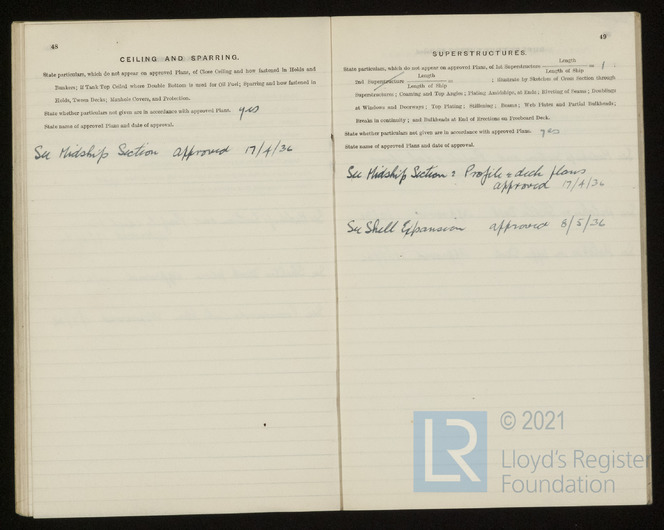 48
CEILING AND SPARRING.
State particulars, which do not appear on approved Plans, of Close Ceiling and how fastened in Holds and
Bunkers; if Tank Top Ceiled where Double Bottom is used for Oil Fuel; Sparring and how fastened in
Holds, Tween Decks; Manhole Covers, and Protection.
State whether particulars not given are in accordance with approved Plans. yes
State name of approved Plans and date of approval.
See Midship Section approved 17/4/36
49
SUPERSTRUCTURES.
State particulars, which do not appear on approved Plans, of 1st Superstructure Length / Length of Ship = 1 .
2nd Superstructure Length / Length of Ship = ; illustrate by Sketches of Cross Section through
Superstructures; Coaming and Top Angles; Plating Amidships, at Ends; Riveting of Seams; Doublings
at Windows and Doorways; Top Plating; Stiffening; Beams; Web Plates and Partial Bulkheads;
Breaks in continuity; and Bulkheads at End of Erections on Freeboard Deck.
State whether particulars not given are in accordance with approved Plans. yes
State name of approved Plans and date of approval.
See Midship Section & Profile & deck plans
approved 17/4/36
See Shell Expansion approved 8/5/36
LR
© 2021
Lloyd's Register
Foundation